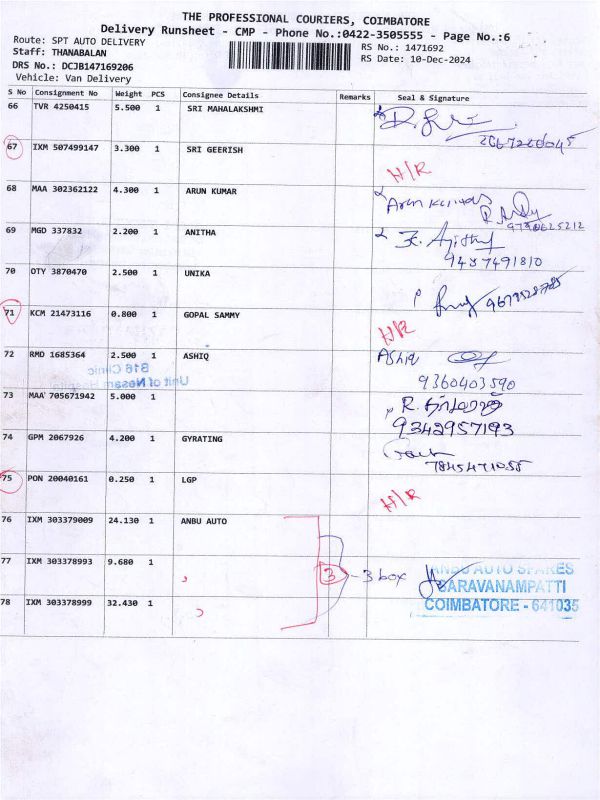 THE PROFESSIONAL COURIERS, COIMBATORE
Delivery Runsheet - CMP - Phone No.:0422-3505555 - Page No.:6
Route: SPT AUTO DELIVERY
RS No.: 1471692
Staff: THANABALAN
RS Date: 10-Dec-2024
DRS No.: DCJB147169206
Vehicle: Van Delivery
S No Consignment No Weight PCS Consignee Details Remarks Seal & Signature
66 TVR 4250415 5.500 1 SRI MAHALAKSHMI
67 IXM 507499147 3.300 1 SRI GEERISH H/R
68 MAA 302362122 4.300 1 ARUN KUMAR Arun Kumar
9790625212
69 MGD 337832 2.200 1 ANITHA
9437491810
70 OTY 3870470 2.500 1 UNIKA
71 KCM 21473116 0.800 1 GOPAL SAMMY H/R
72 RMD 1685364 2.500 1 ASHIQ Ashiq
9360403590
B16 Clinic
Unit of Nesam Hospital
73 MAA 705671942 5.000 1 R.
9342957193
74 GPM 2067926 4.200 1 GYRATING
7845471055
75 PON 20040161 0.250 1 LGP H/R
76 IXM 303379009 24.130 1 ANBU AUTO
77 IXM 303378993 9.680 1 3 - 3 box
78 IXM 303378999 32.430 1
ANBU AUTO SPARES
SARAVANAMPATTI
COIMBATORE - 641035